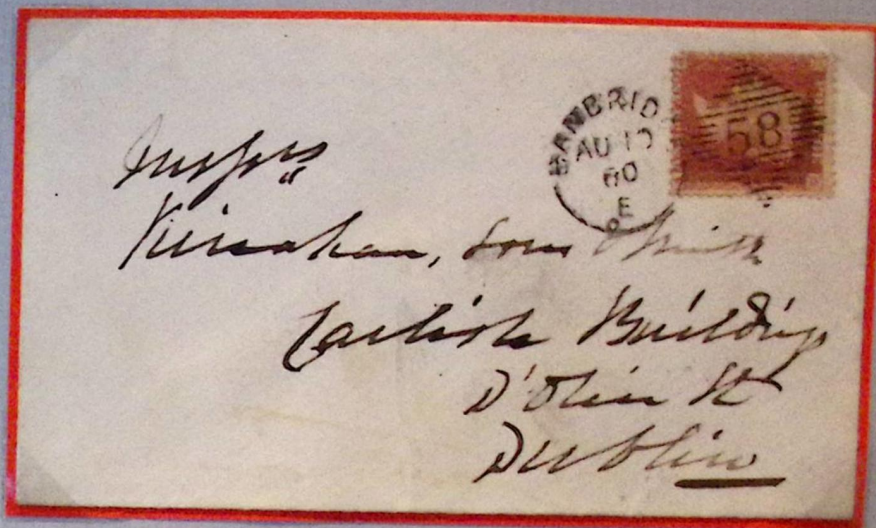 BANBRIDG
AU 10
60
E
58
Messrs
Kinahan, Sons & Smith
Carlisle Buildings
D'Olier St
Dublin